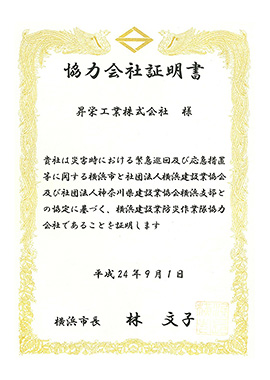 協力会社証明書
昇栄工業株式会社 様
貴社は災害時における緊急巡回及び応急措置
等に関する横浜市と社団法人横浜建設業協会
及び社団法人神奈川県建設業協会横浜支部と
の協定に基づく、横浜建設業防災作業隊協力
会社であることを証明します
平成24年9月1日
横浜市長 林 文子